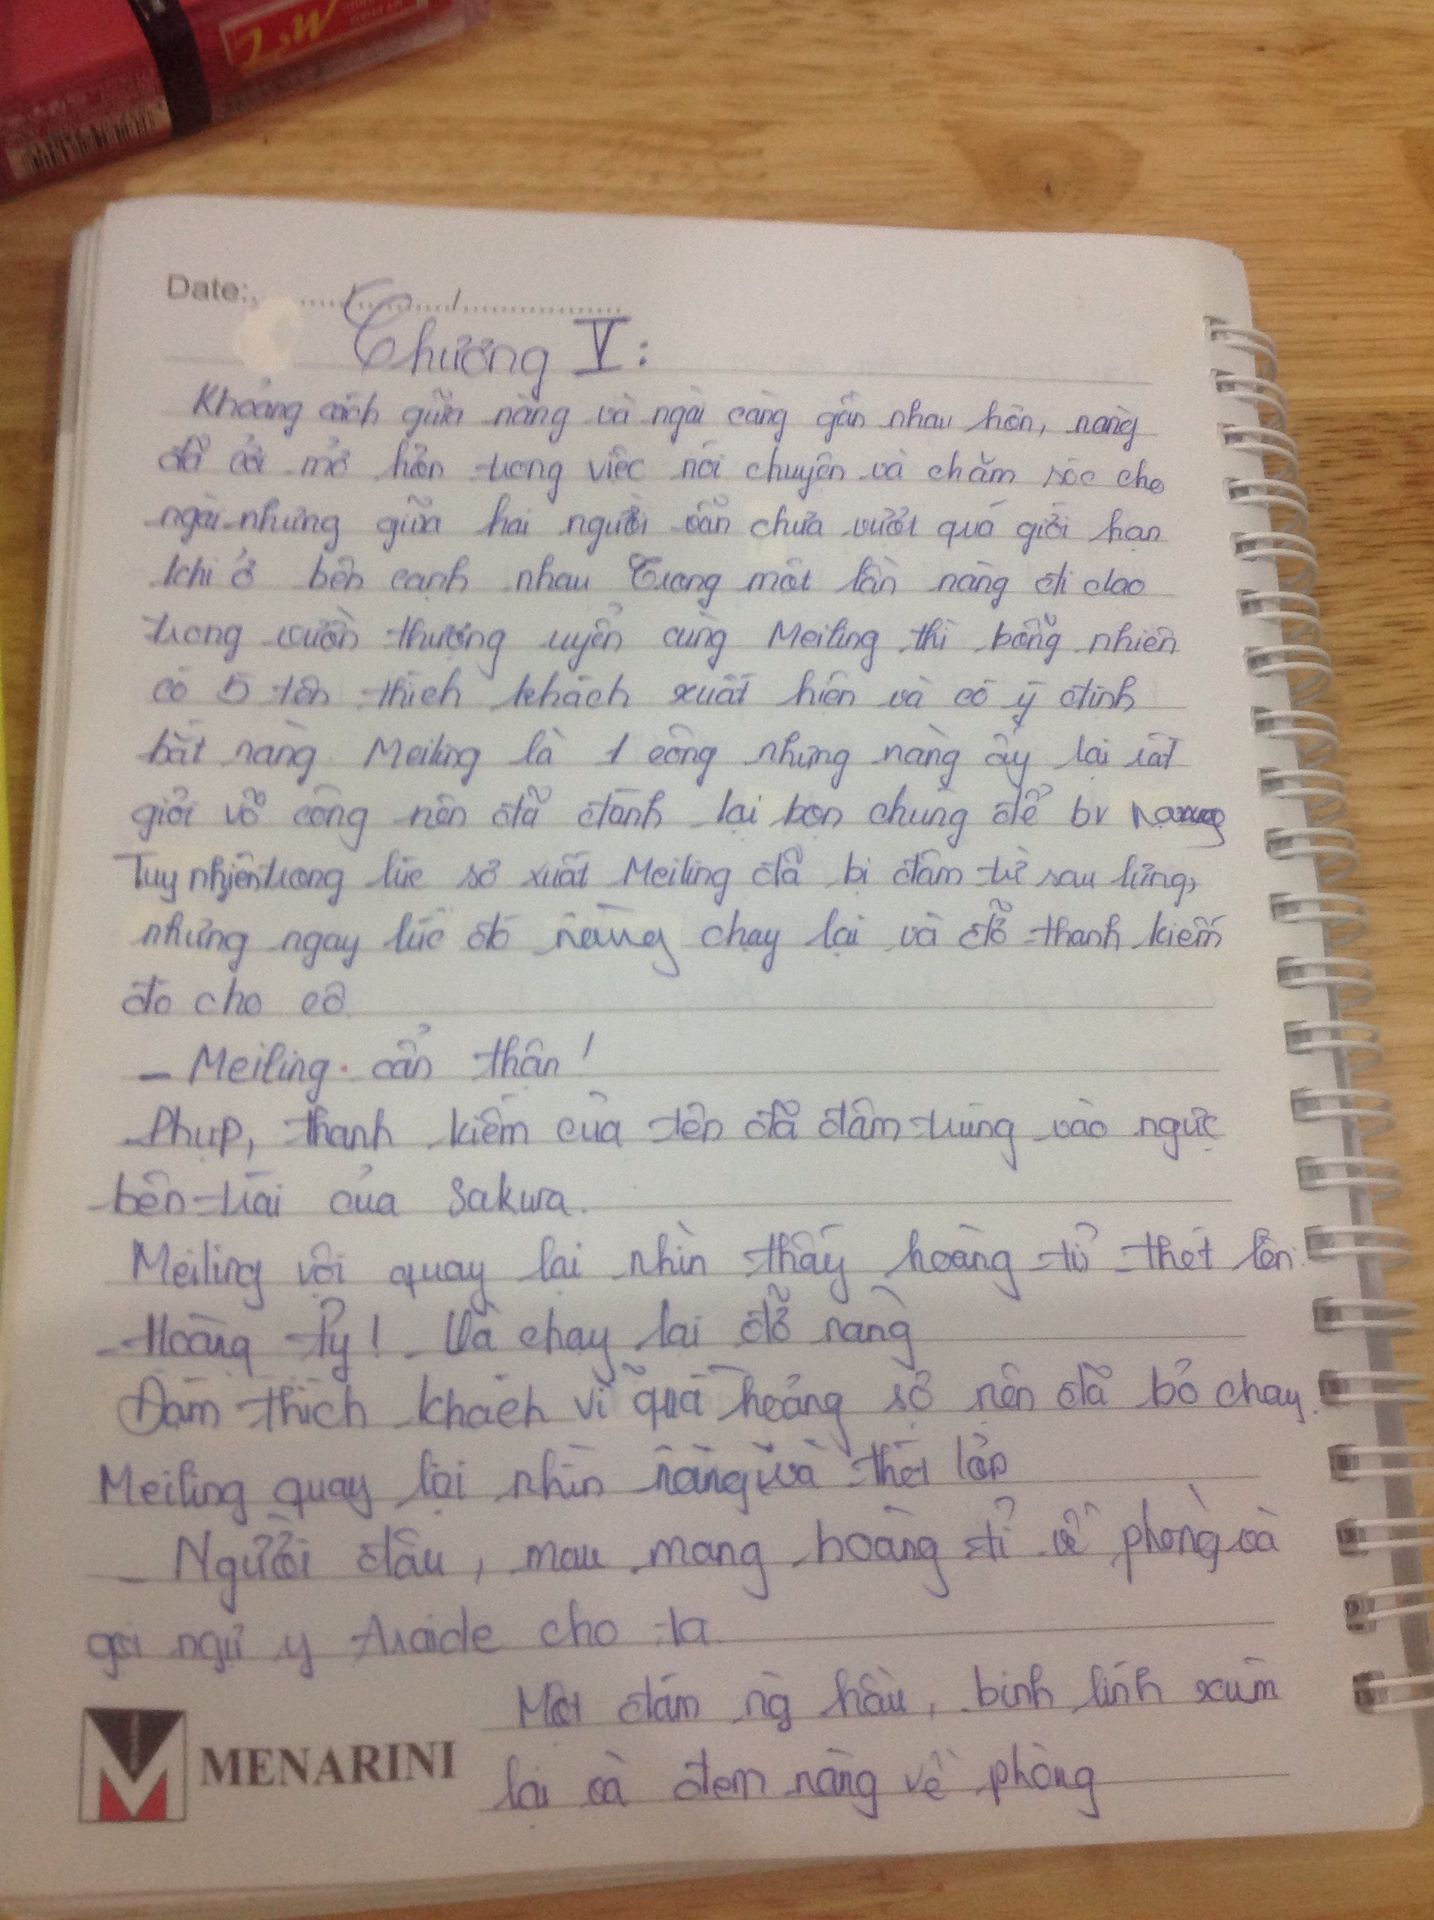 Date:
Chương V:
Khoảng cách giữa nàng và ngài càng gần nhau hơn, nàng
đã cởi mở hơn trong việc nói chuyện và chăm sóc cho
ngài nhưng giữa hai người vẫn chưa vượt quá giới hạn
khi ở bên cạnh nhau Trong một lần nàng đi dạo
trong vườn thượng uyển cùng Meiling thì bỗng nhiên
có 5 tên thích khách xuất hiện và có ý định
bắt nàng Meiling là 1 công nhưng nàng ấy lại rất
giỏi võ công nên đã đánh lại bọn chúng để bv nàng
Tuy nhiên trong lúc sơ xuất Meiling đã bị đâm từ sau lưng,
nhưng ngay lúc đó nàng chạy lại và đỡ thanh kiếm
đó cho cô
- Meiling cẩn thận!
Phụp, thanh kiếm của tên đã đâm trúng vào ngực
bên trái của Sakura.
Meiling vội quay lại nhìn thấy hoàng tử thét lên
- Hoàng tỷ! Và chạy lại đỡ nàng
Đám thích khách vì quá hoảng sợ nên đã bỏ chạy.
Meiling quay lại nhìn nàng và thét lớn
- Người đâu, mau mang hoàng tỉ về phòng và
gọi ngự y cho ta
Một đám ng hầu, binh lính xúm
lại và đem nàng về phòng
MENARINI